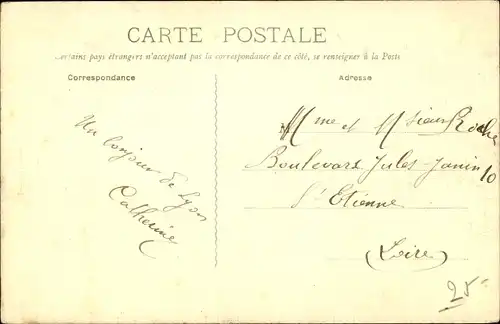 CARTE POSTALE
Certains pays étrangers n'acceptant pas la correspondance de ce côté, se renseigner à la Poste
Correspondance
Adresse
Un bonjour de Lyon
Catherine
Mme et Msieur Roche
Boulevard Jules Janin 10
St Etienne
(Loire)
25